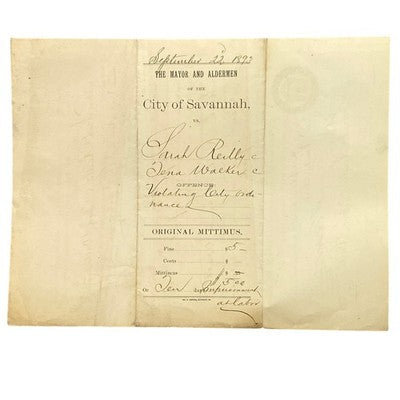 September 22 1893
THE MAYOR AND ALDERMEN
OF THE
City of Savannah,
vs.
Sarah Reilly c
Tena Walker c
OFFENCE
Violating City ordi-
nance
ORIGINAL MITTIMUS.
Fine $ 5-
Costs $
Mittimus $
$ 5 00
Or Ten days Imprisonment
at labor